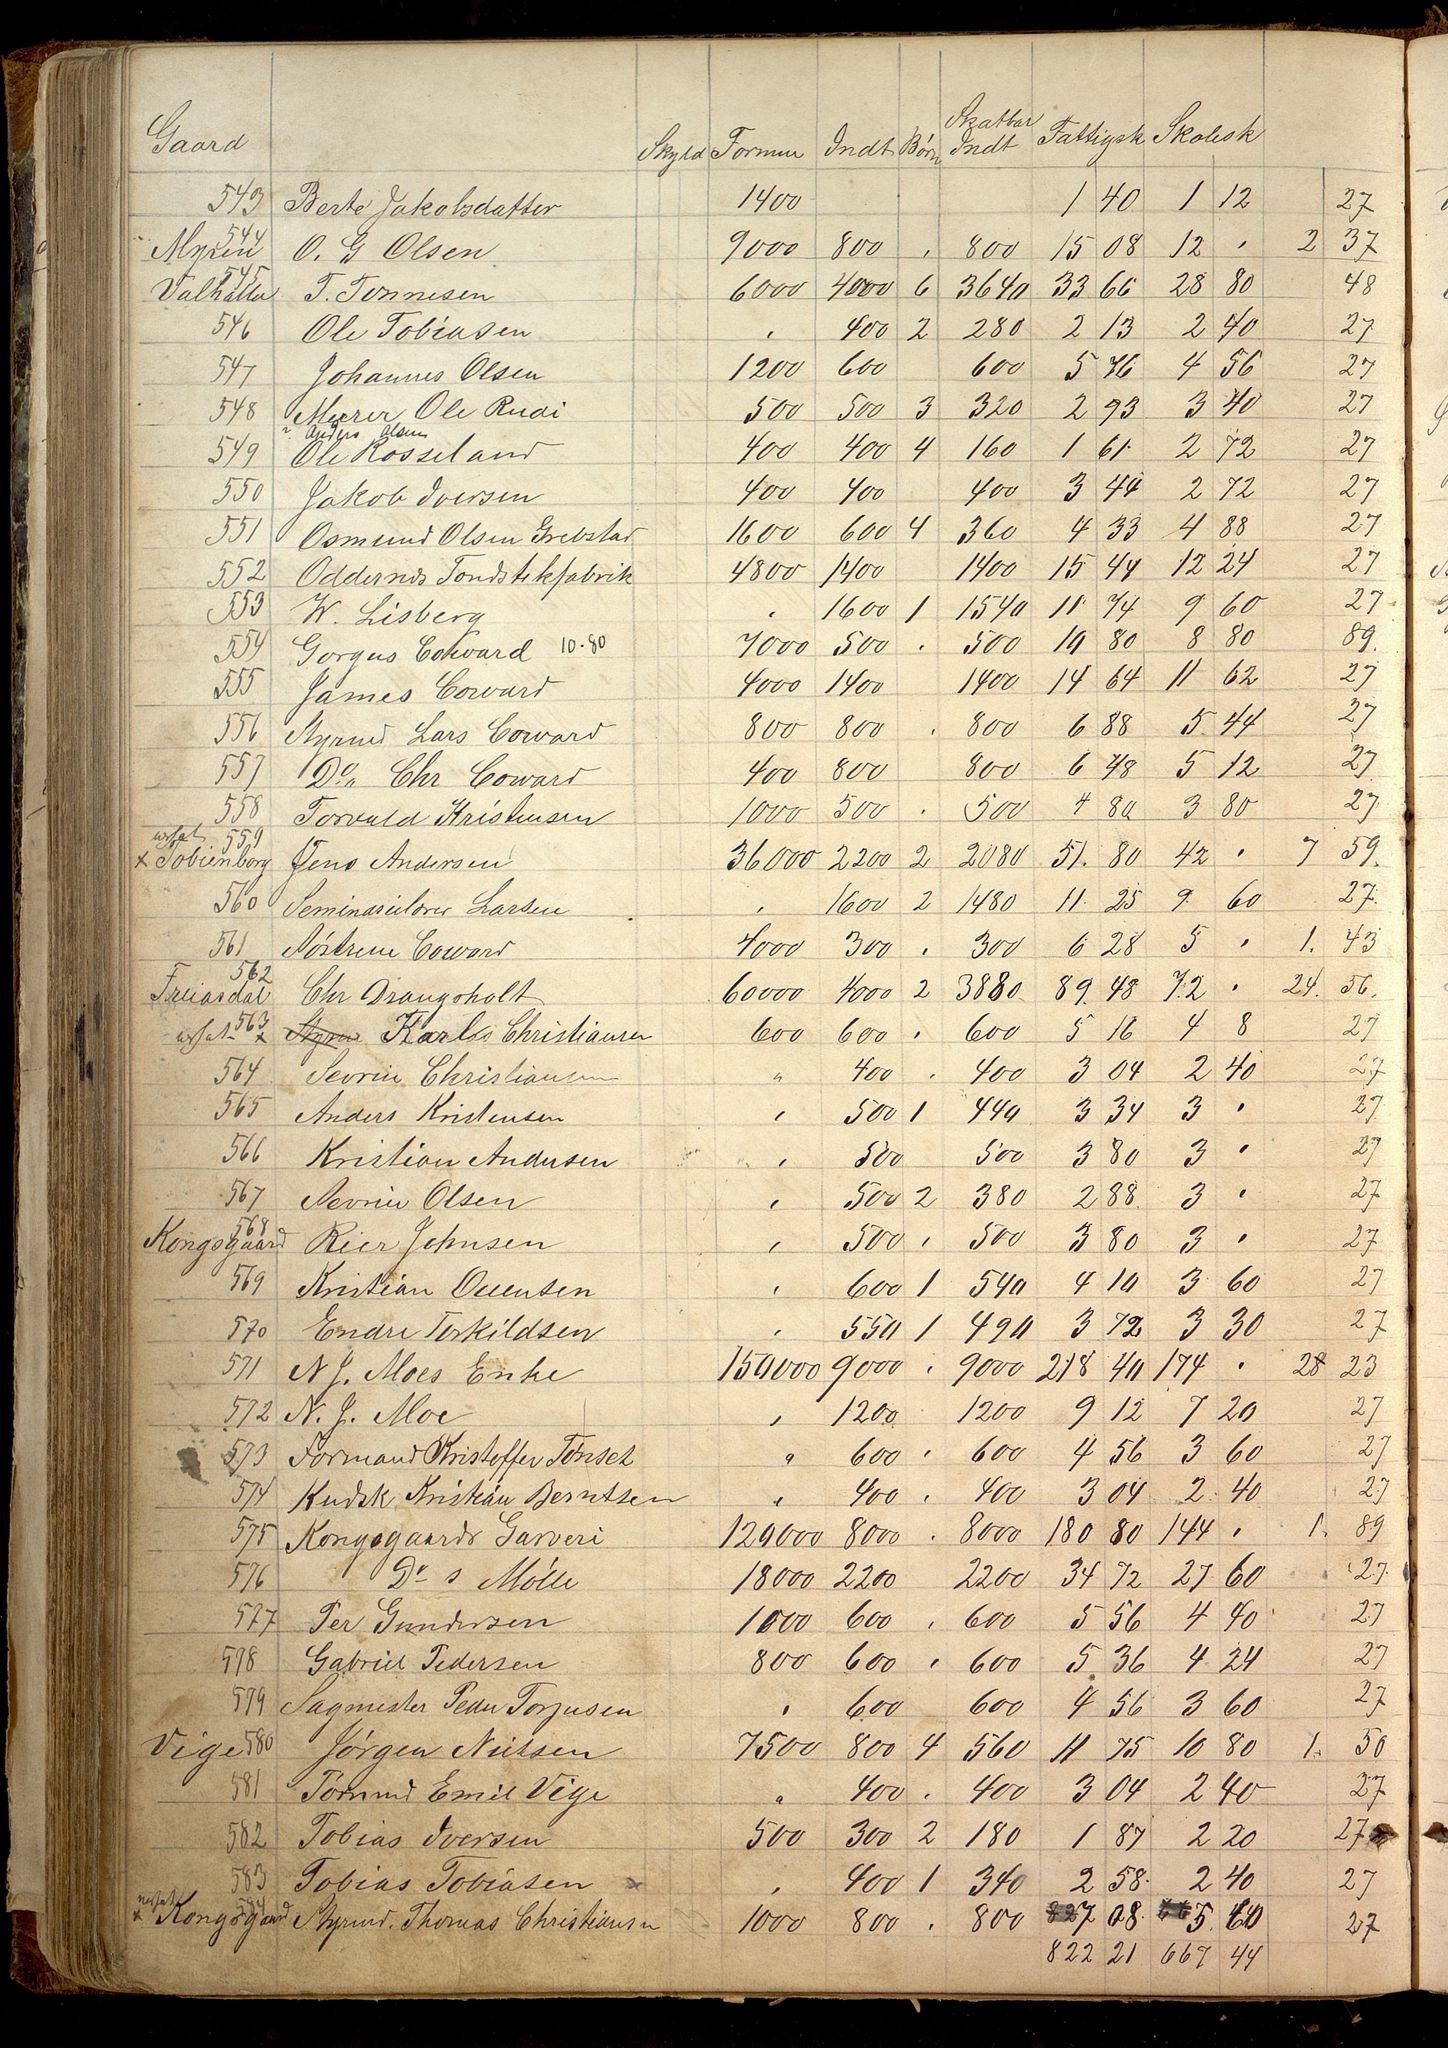 Gaard Skyld Formue Indt. Børn Skatbar Indt Fattigsk Skolesk
543 Berte Jakobsdatter 1400 1 40 1 12 27
Myren 544 O. G Olsen 9000 800 . 800 15 08 12 . 2 37
Valhalla 545 T. Tønnesen 6000 4000 6 3640 33 66 28 80 48
546 Ole Tobiasen . 400 2 280 2 13 2 40 27
547 Johannes Olsen 1200 600 600 5 76 4 56 27
548 Murer Ole Rudi 500 500 3 320 2 93 3 40 27
" Anders Olsen
549 Ole Rosseland 400 400 4 160 1 61 2 72 27
550 Jakob Iversen 400 400 400 3 44 2 72 27
551 Osmund Olsen Grebstad 1600 600 4 360 4 33 4 88 27
552 Oddernes Tøndstikfabrik 4800 1400 1400 15 44 12 24 27
553 W. Lisberg . 1600 1 1540 11 74 9 60 27
554 Gorgus Coward 10.80 7000 500 . 500 10 80 8 80 89.
555 James Coward 4000 1400 1400 14 64 11 62 27
556 Styrmd Lars Coward 800 800 . 800 6 88 5 44 27
557 Do " Chr Coward 400 800 800 6 48 5 12 27
558 Torvald Kristensen 1000 500 . 500 4 80 3 80 27
x Tobienborg 559 Jens Andersen 36000 2200 2 2080 51. 80 42 . 7 59.
560 Seminarielærer Larsen . 1600 2 1480 11. 25 9 60 27.
561 Coward 4000 300 . 300 6 28 5 . 1. 43
Freiasdal 562 Chr Drangsholt 60000 4000 2 3880 89 48 72 . 24. 56.
563 x Styrm Karl Christiansen 600 600 . 600 5 16 4 8 27
564 Sevrin Christiansen " 400 . 400 3 04 2 40 27
565 Anders Kristensen . 500 1 440 3 34 3 . 27
566 Kristian Andersen . 500 500 3 80 3 . 27
567 Sevrin Olsen . 500 2 380 2 88. 3 . 27
Kongsgaard 568 Reer Johnsen . 500 . 500 3 80 3 . 27
569 Kristian Ouensen . 600 1 540 4 10 3 60 27
570 Endre Torkildsen . 550 1 490 3 72 3 30 27
571 N J. Moes Enke 150000 9000 . 9000 218 40 174 . 28 23
572 N. J. Moe . 1200 1200 9 12 7 20 27
573 Formand Kristoffer Tønset " 600 . 600 4 56 3 60 27
574 Kudsk Kristian Berntsen " 400 . 400 3 04 2 40 27
575 Kongsgaards Garveri 120000 8000 . 8000 180 80 144 . 1. 89
576 Do s Mølle 18000 2200 2200 34 72 27 60 27
577 Per Gundersen 1000 600 . 600 5 56 4 40 27
578 Gabriel Pedersen 800 600 . 600 5 36 4 24 27
579 Sagmester Peder Torjusen . 600 600 4 56 3 60 27
Vige 580 Jørgen Nielsen 7500 800 4 560 11 75 10 80 1. 50
581 Tørnmd Emil Vige " 400 . 400 3 04 2 40 27
582 Tobias Iversen 500 300 2 180 1 87 2 20 27
583 Tobias Tobiasen . 400 1 340 2 58. 2 40 27
x Kongsgaard 584 Styrmd. Thomas Christiansen 1000 800 . 800 7 08. 5. 60 27
822 21 667 44